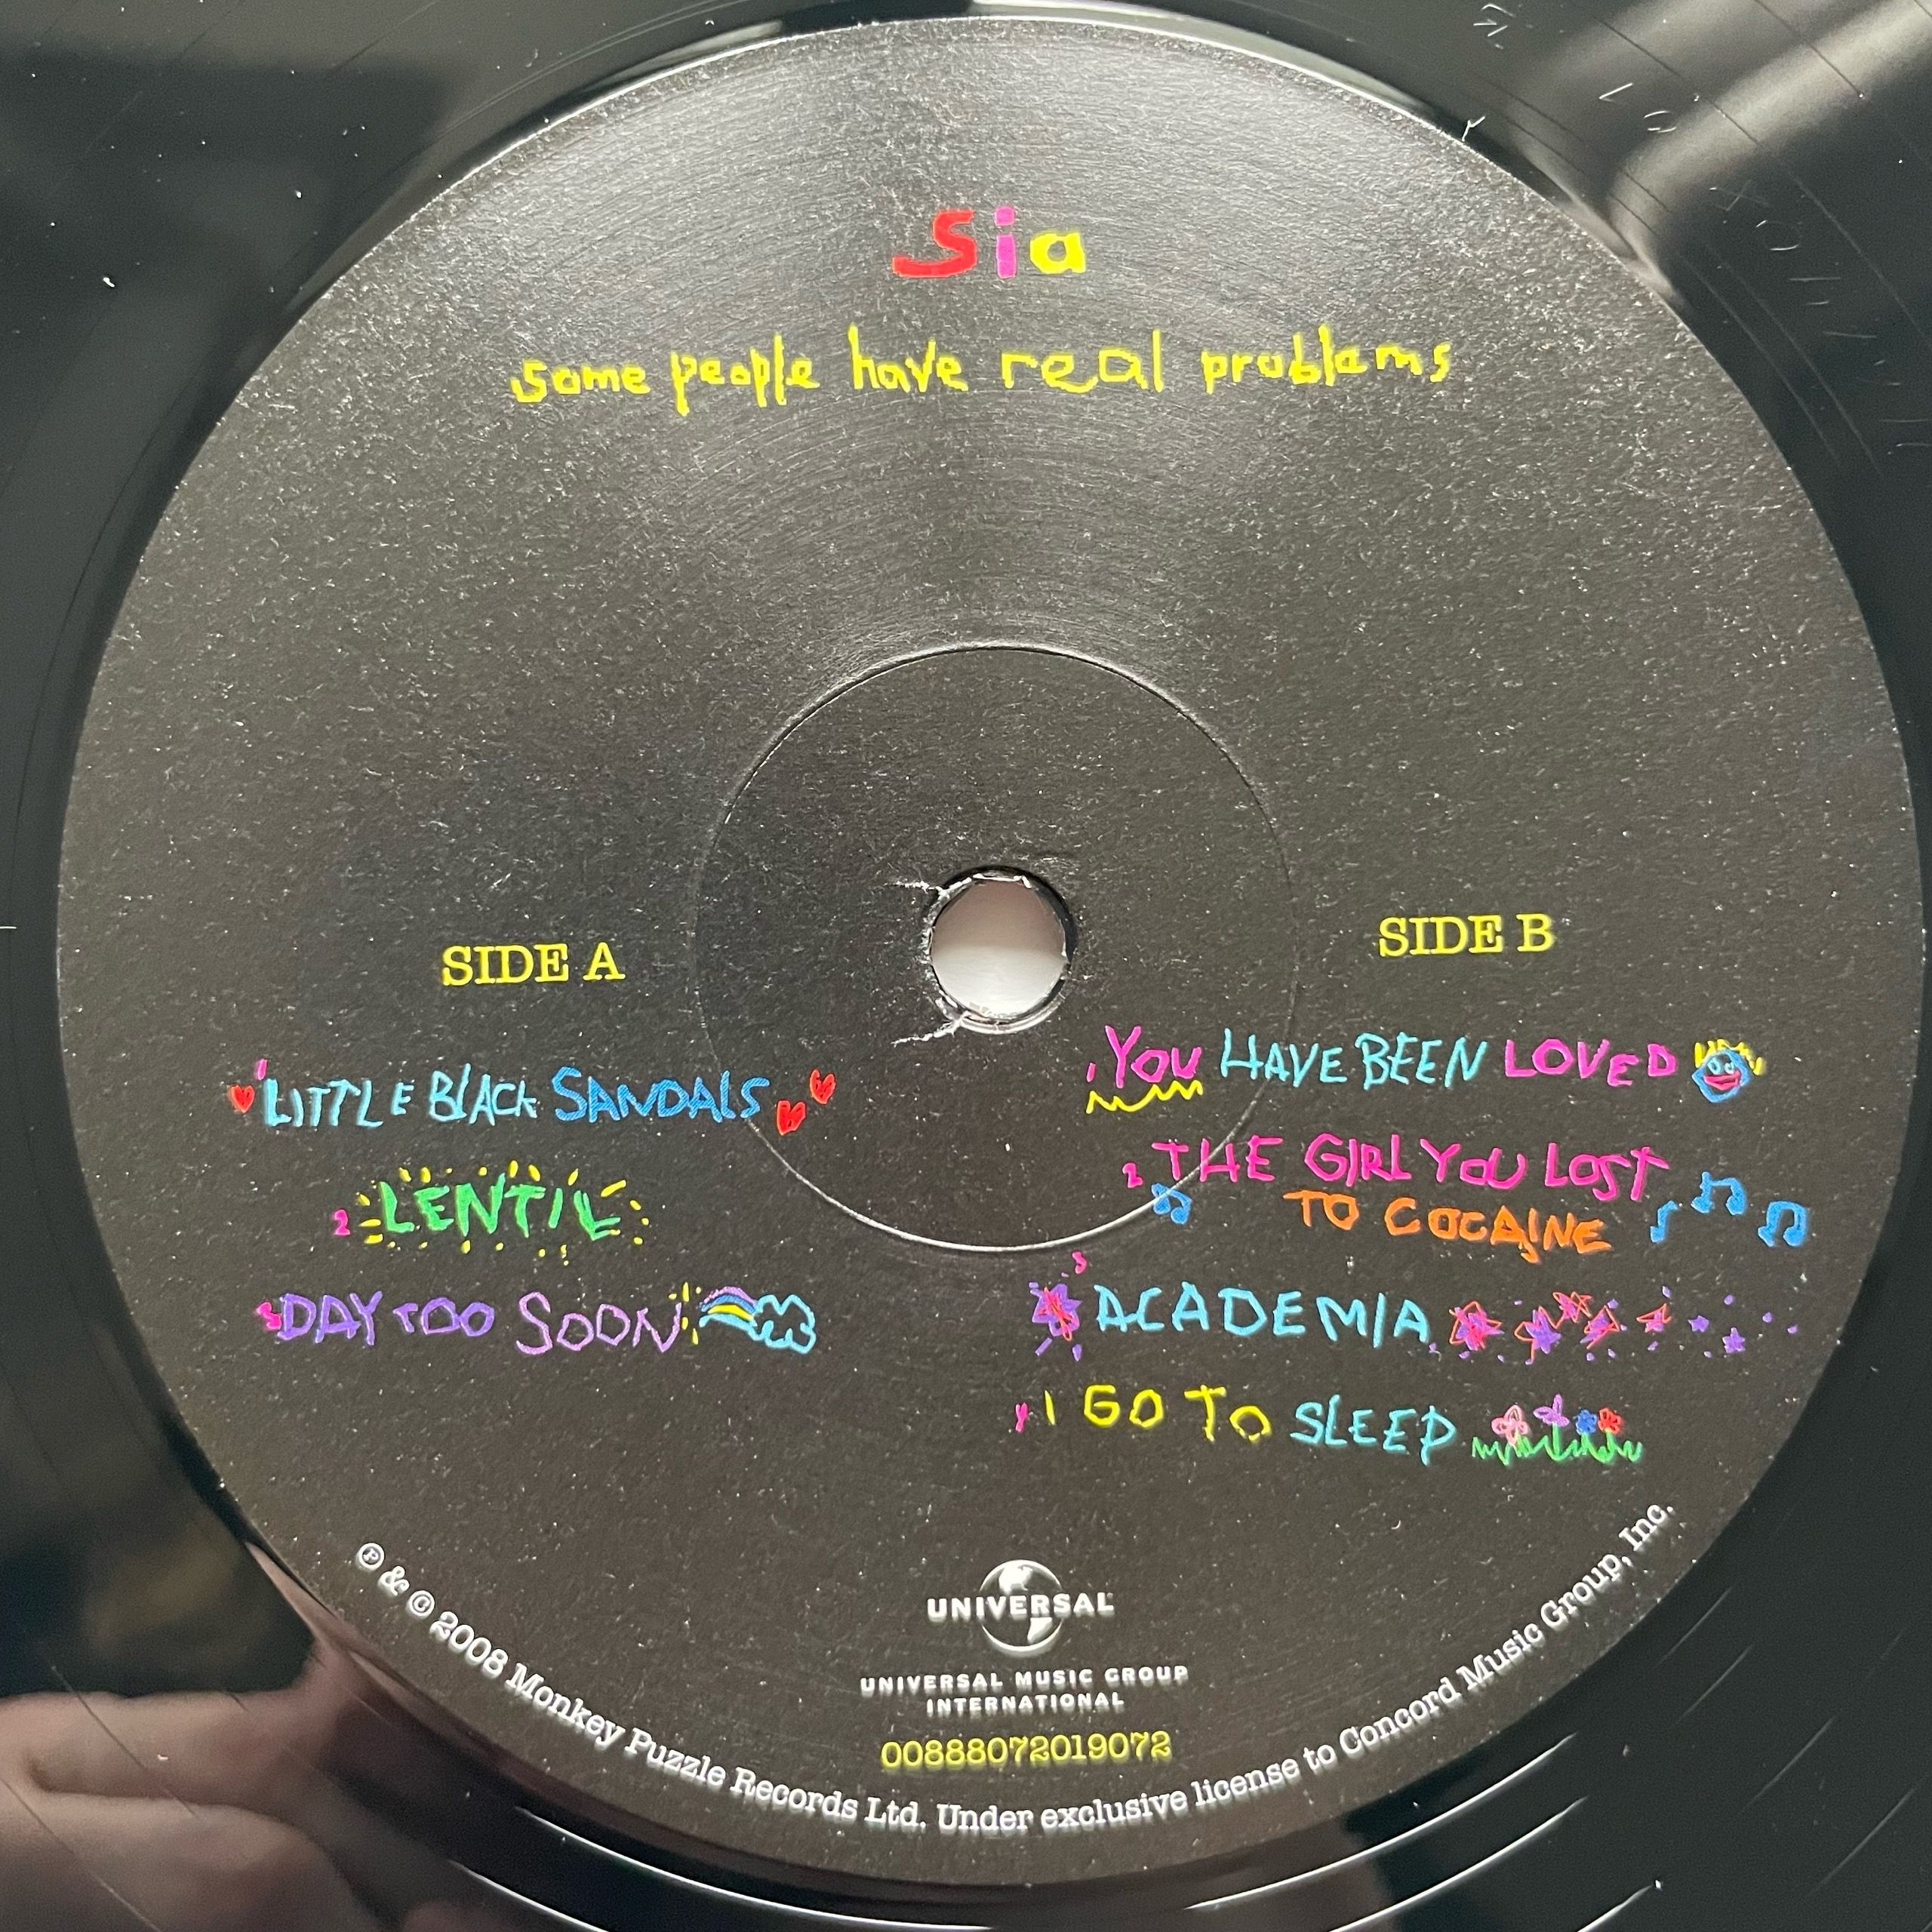 Sia
some people have real problems
SIDE A
1 LITTLE BLACK SANDALS
2 LENTIL
3 DAY TOO SOON
SIDE B
1 YOU HAVE BEEN LOVED
2 THE GIRL YOU LOST
TO COCAINE
3 ACADEMIA
4 I GO TO SLEEP
UNIVERSAL
UNIVERSAL MUSIC GROUP
INTERNATIONAL
00888072019072
℗ & © 2008 Monkey Puzzle Records Ltd. Under exclusive license to Concord Music Group, Inc.